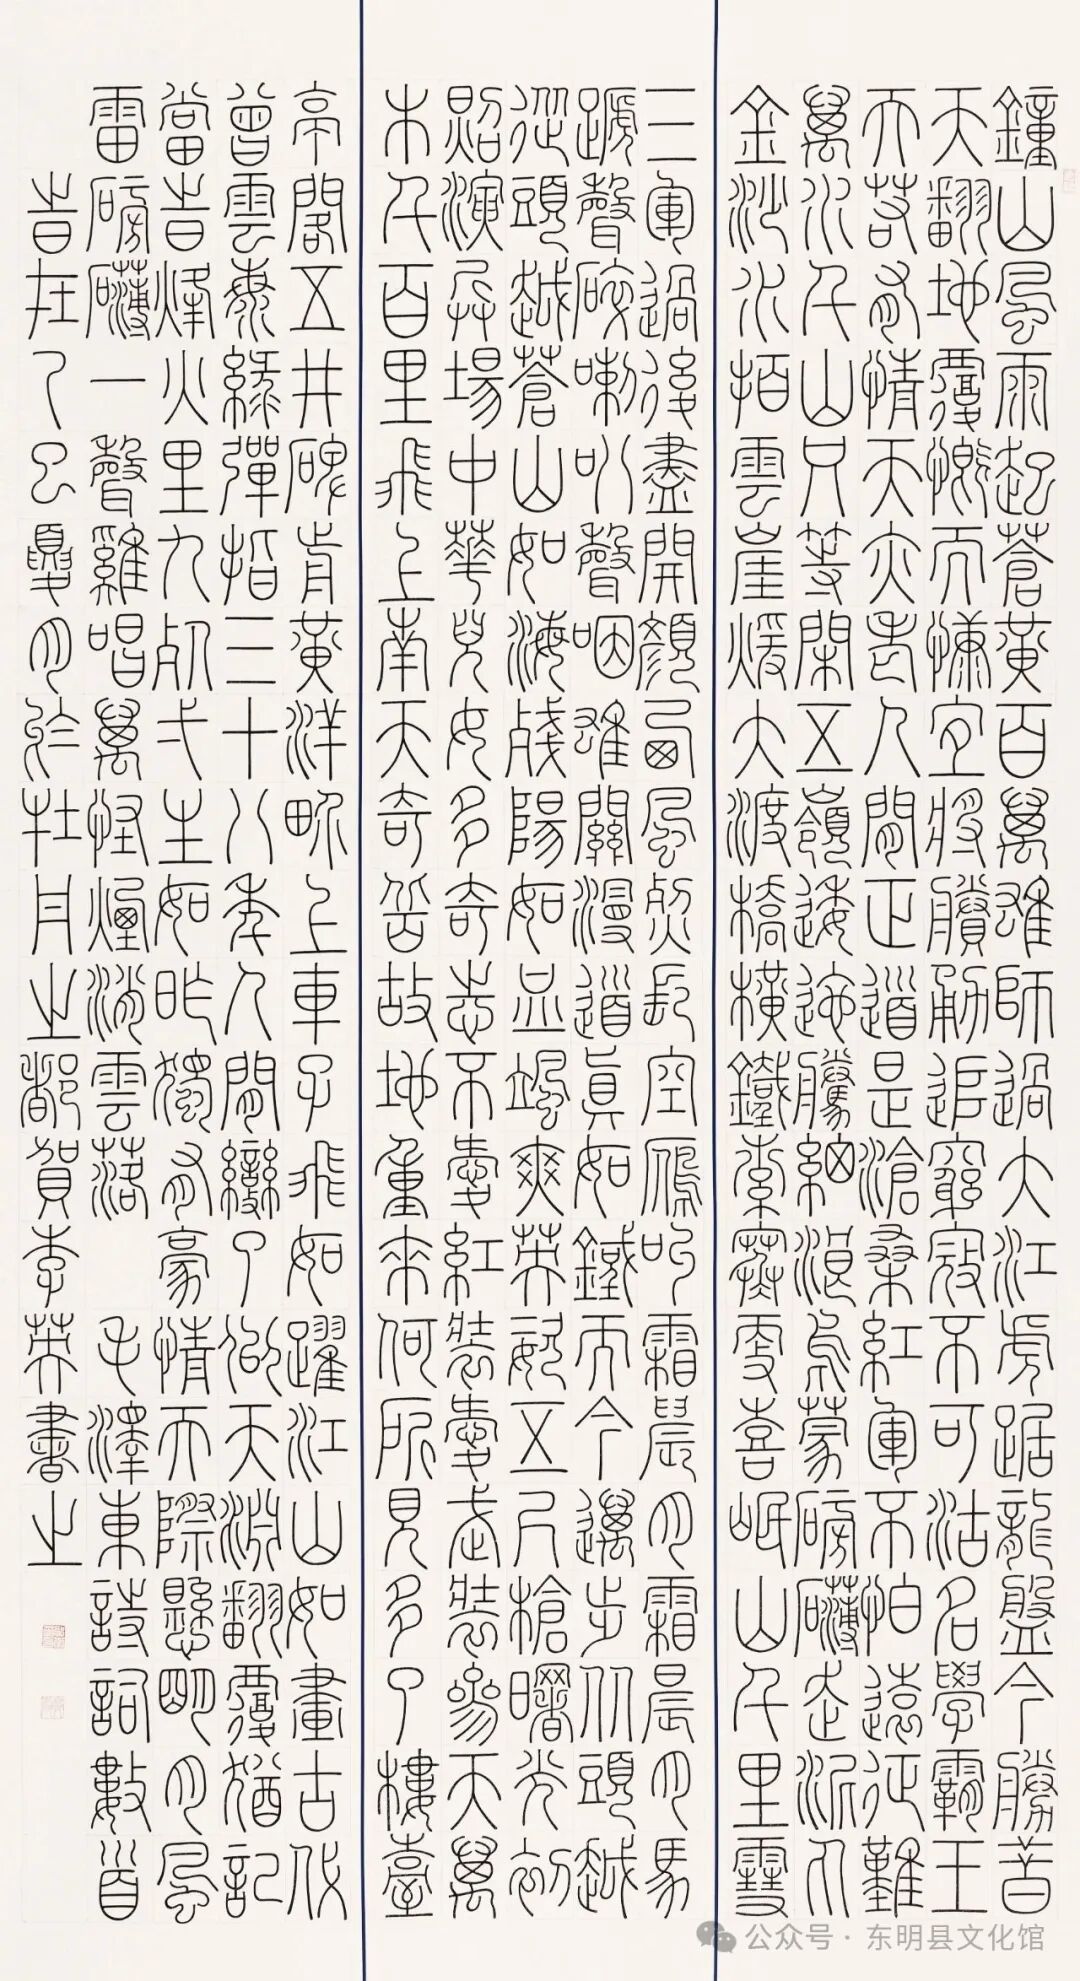 鐘山風雨起蒼黃百萬雄師過大江虎踞龍盤今勝昔
天翻地覆慨而慷宜將賸勇追窮寇不可沽名學霸王
天若有情天亦老人間正道是滄桑紅軍不怕遠征難
萬水千山只等閒五嶺逶迤騰細浪烏蒙磅礴走泥丸
金沙水拍雲崖暖大渡橋橫鐵索寒更喜岷山千里雪
三軍過後盡開顏西風烈長空雁叫霜晨月霜晨月馬
蹄聲碎喇叭聲咽雄關漫道真如鐵而今邁步從頭越
從頭越蒼山如海殘陽如血颯爽英姿五尺槍曙光初
照演兵場中華兒女多奇志不愛紅裝愛武裝參天萬
木千百里飛上南天奇岳故地重來何所見多了樓臺
亭閣五井碑前黃洋界上車子飛如躍江山如畫古代
曾雲海綠彈指三十八年人間變了似天淵翻覆猶記
當時烽火里九死一生如昨獨有豪情天際懸明月風
雷磅礴一聲雞唱萬怪煙消雲落 毛澤東詩詞數首
時在乙巳夏月於牡丹之都賀英書之
公众号·东明县文化馆